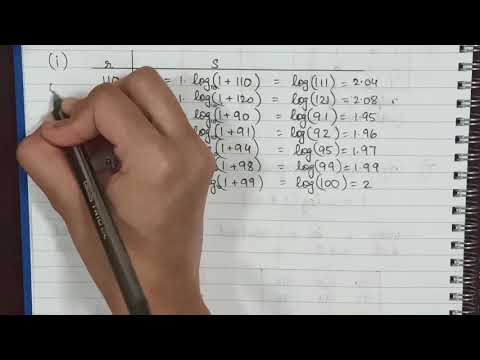 (i) r s
110 = 1. log₁₀(1 + 110) = log(111) = 2.04
1. log₁₀(1 + 120) = log(121) = 2.08
log₁₀(1 + 90) = log(91) = 1.95
log₁₀(1 + 91) = log(92) = 1.96
(1 + 94) = log(95) = 1.97
(1 + 98) = log(99) = 1.99
(1 + 99) = log(100) = 2